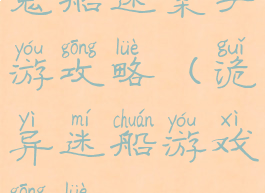 鬼船迷案手
yóu gōng lüè guǐ
游攻略（诡
yì mí chuán yóu xì
异迷船游戏
gōng lüè